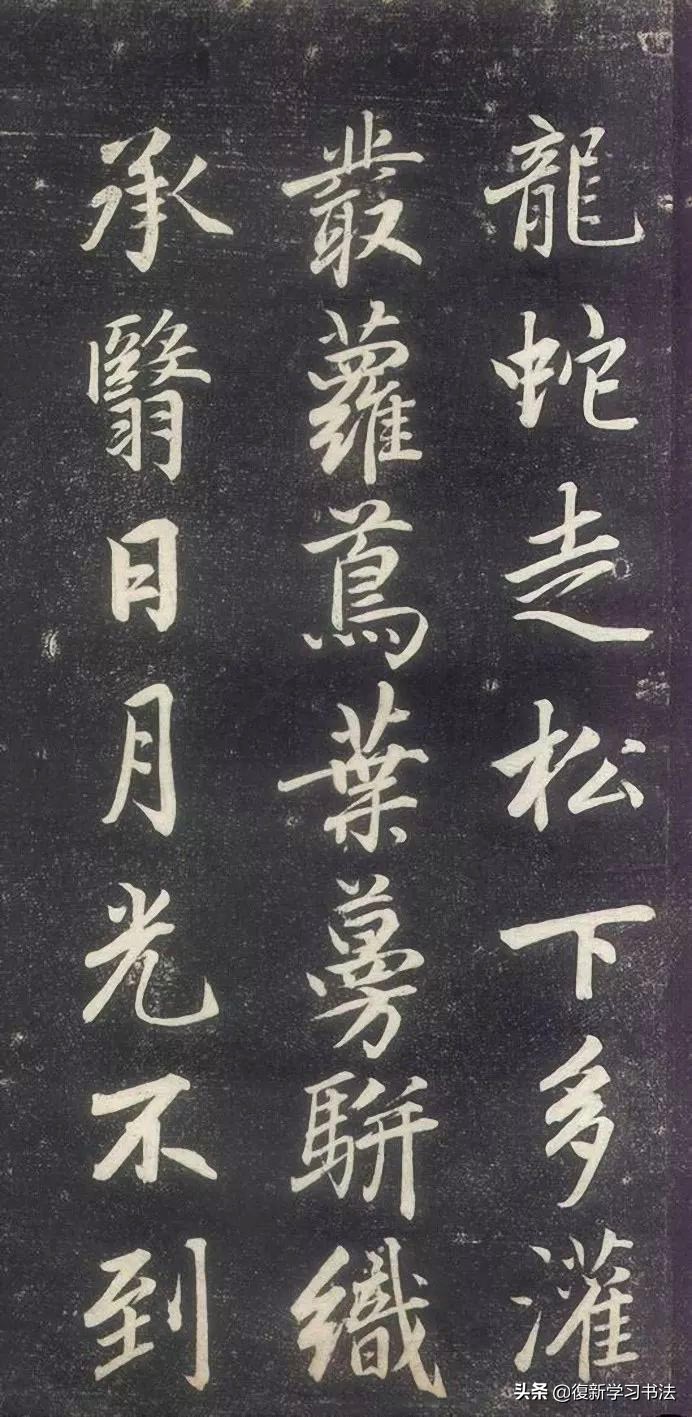 龍虵走松下多灌
叢蘿蔦葉蔓駢織
承翳日月光不到
头条 @復新学习书法